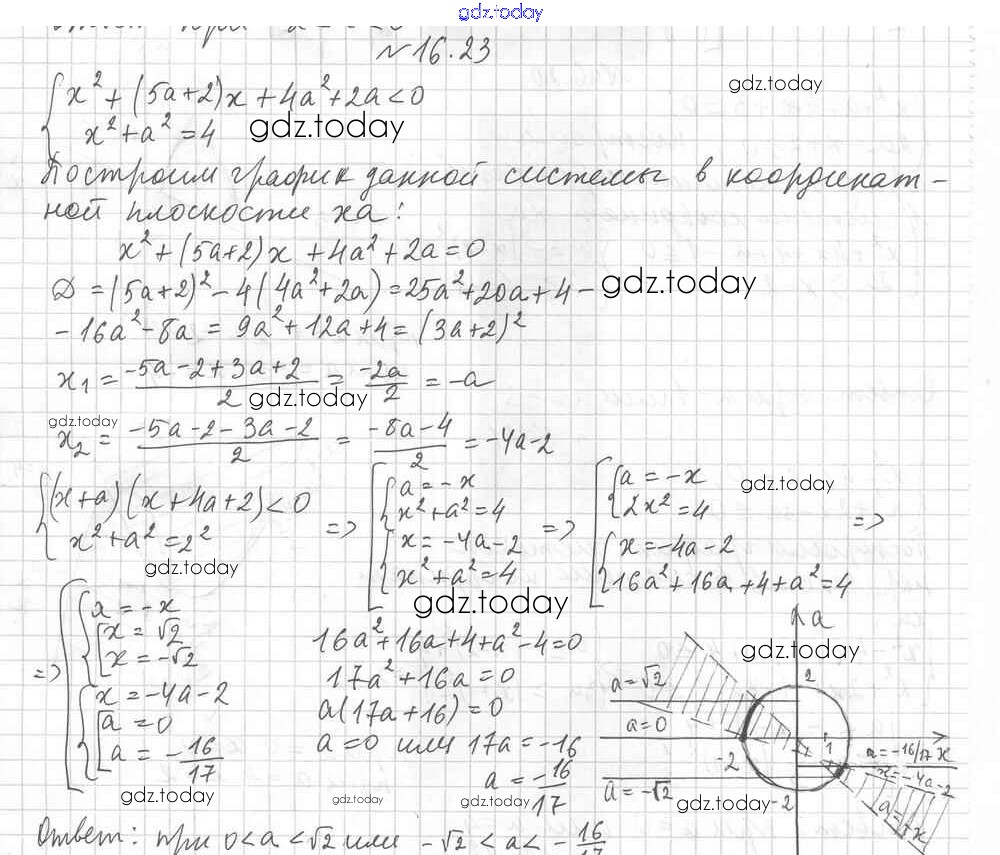 gdz.today
№16.23
gdz.today
{ x² + (5a+2)x + 4a² + 2a < 0
x² + a² = 4
gdz.today
Построим график данной системы в координат-
ной плоскости xa:
x² + (5a+2)x + 4a² + 2a = 0
D = (5a+2)² - 4(4a² + 2a) = 25a² + 20a + 4 -
gdz.today
- 16a² - 8a = 9a² + 12a + 4 = (3a+2)²
x₁ = (-5a - 2 + 3a + 2)/2 = -2a/2 = -a
gdz.today
gdz.today
x₂ = (-5a - 2 - 3a - 2)/2 = (-8a - 4)/2 = -4a - 2
{ (x+a)(x+4a+2) < 0
x² + a² = 2²
=>
[ { a = -x
x² + a² = 4
{ x = -4a - 2
x² + a² = 4
=>
[ { a = -x
2x² = 4
{ x = -4a - 2
16a² + 16a + 4 + a² = 4
=>
gdz.today
gdz.today
gdz.today
=> [ { a = -x
[ x = √2
x = -√2
{ x = -4a - 2
[ a = 0
a = -16/17
16a² + 16a + 4 + a² - 4 = 0
17a² + 16a = 0
a(17a + 16) = 0
a = 0 или 17a = -16
a = -16/17
a
gdz.today
2
a = √2
a = 0
1
-2
a = -16/17
x
x = -4a - 2
a = -√2
-2
a = -x
gdz.today
gdz.today
gdz.today
gdz.today
Ответ: при 0 < a < √2 или -√2 < a < -16/17